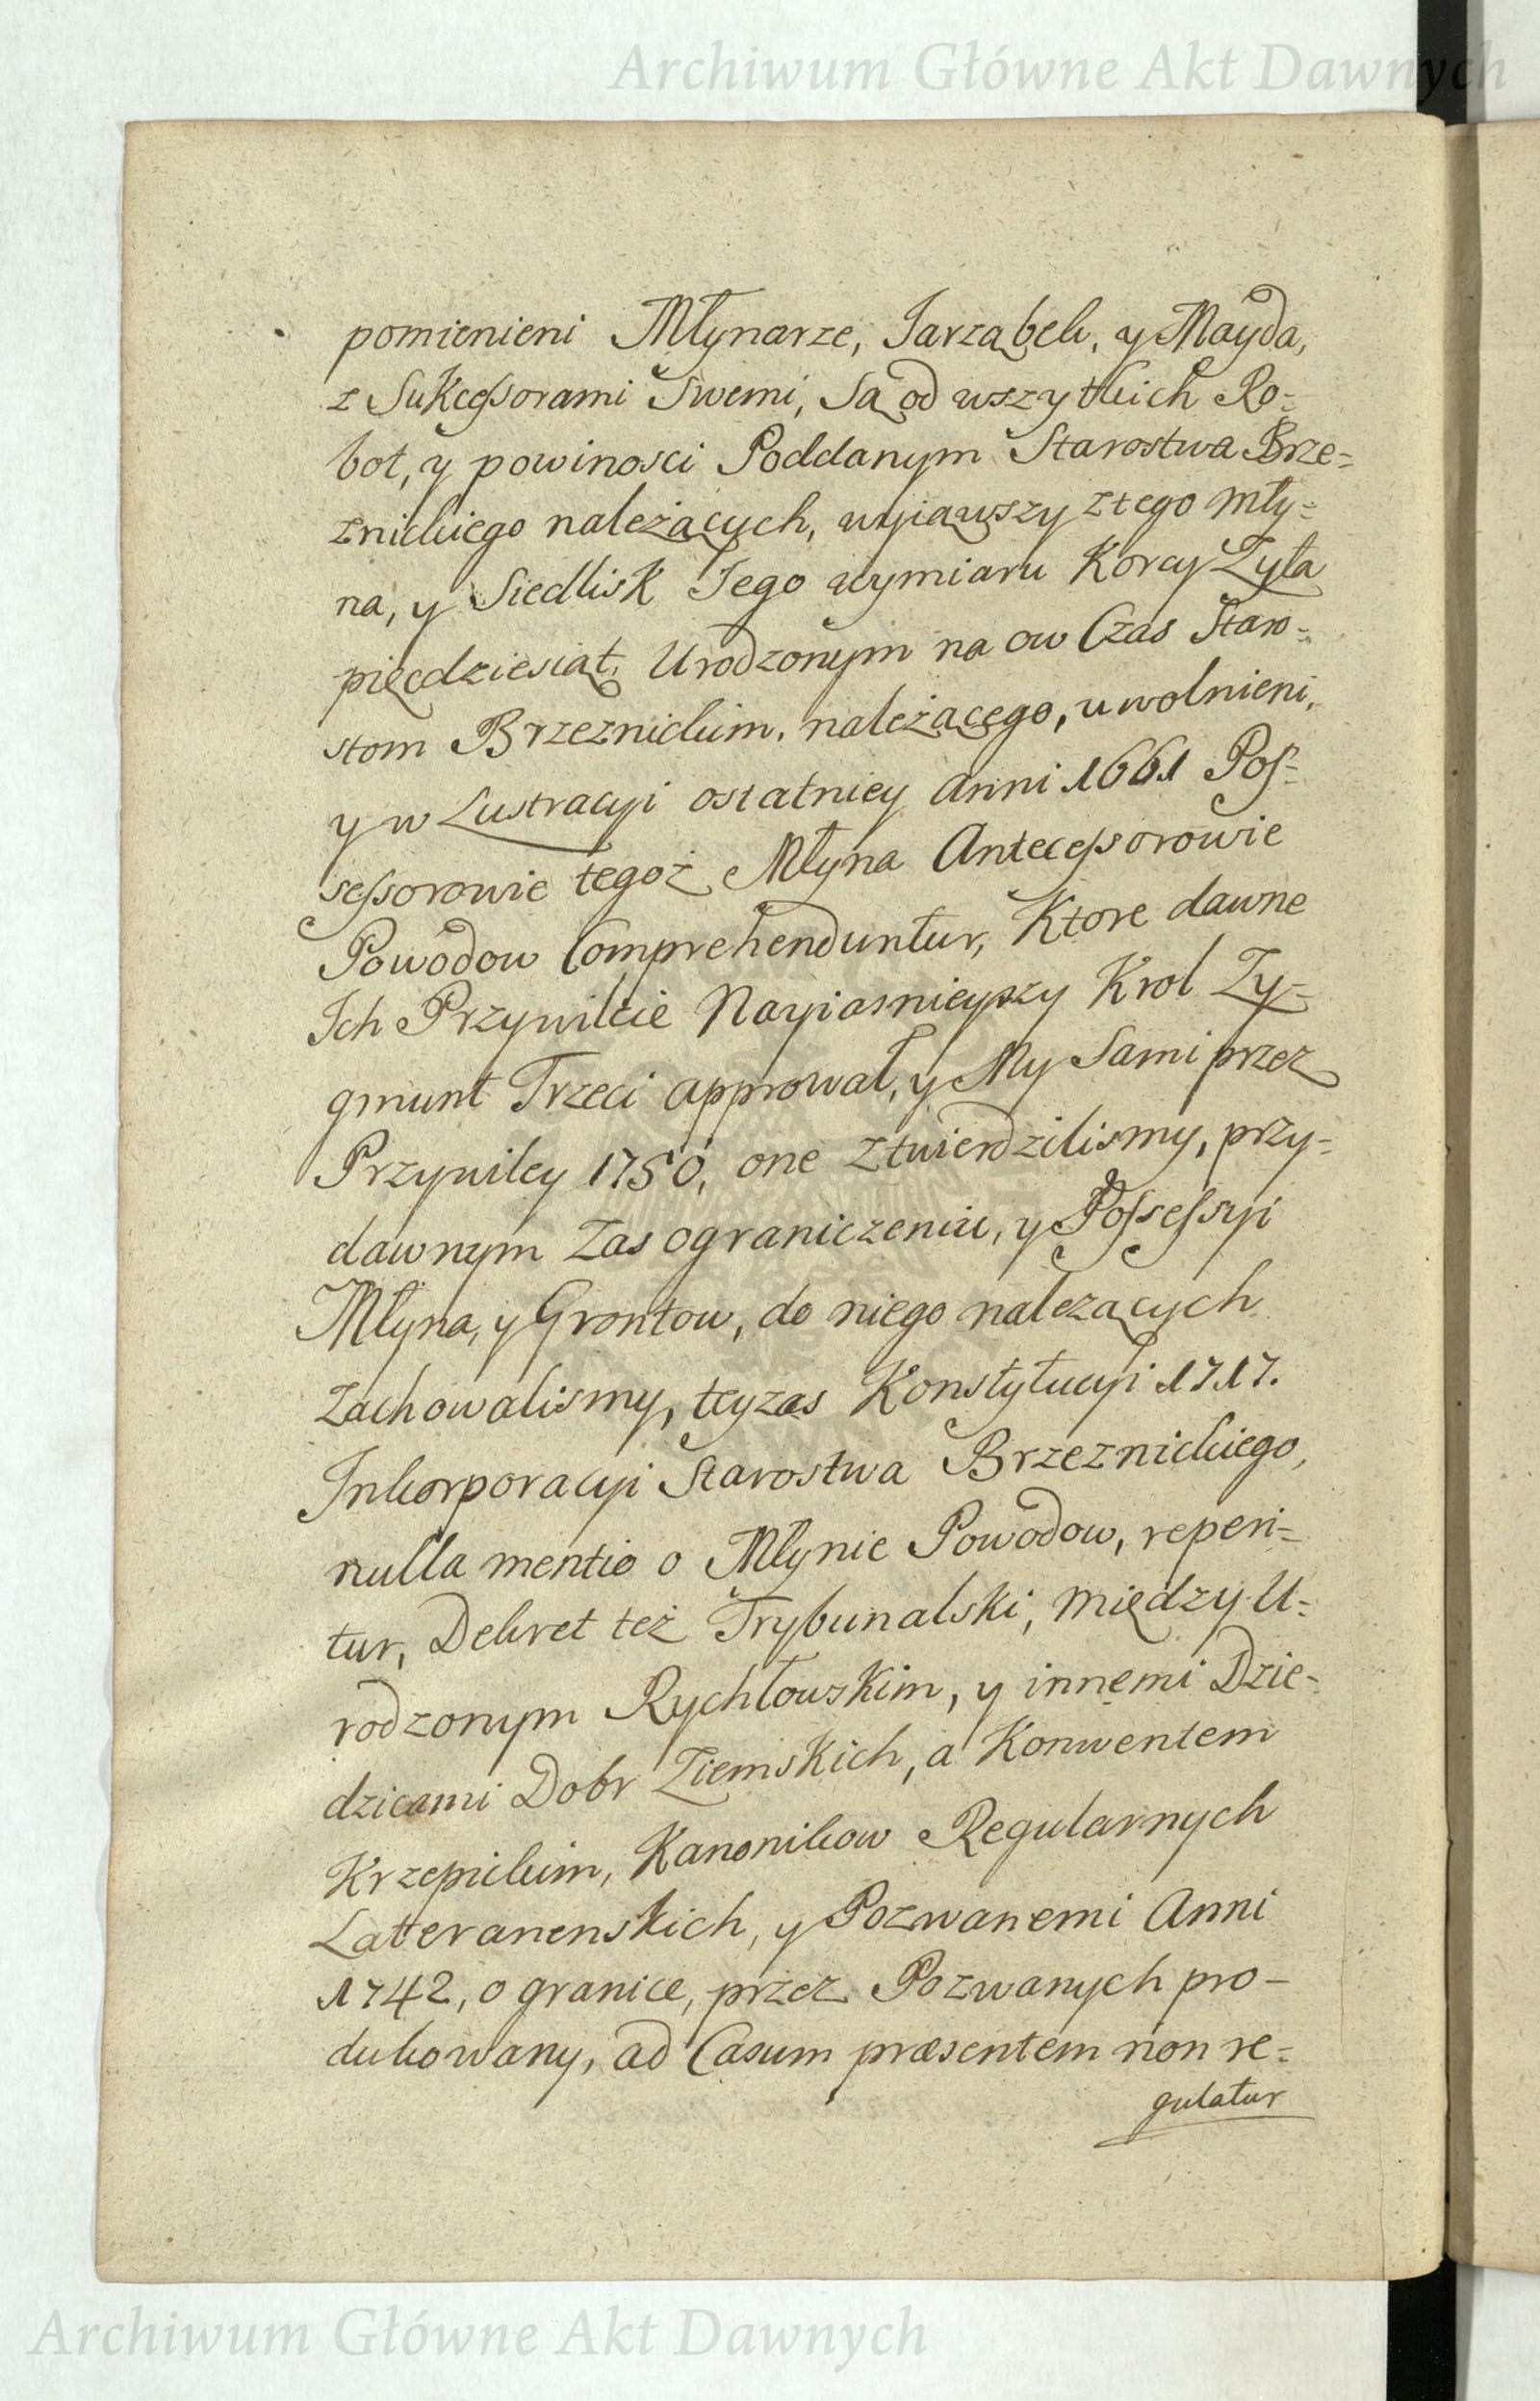 Archiwum Główne Akt Dawnych
pomienieni Młynarze, Jarząbek, y Mayda,
z Sukcessorami Swemi, Są od wszytkich Ro=
bot, y powinosci Poddanym Starostwa Brze=
znickiego należących, wyiąwszy z tego Mły=
na, y Siedlisk Jego wymiaru Korcy Żyta
pięcdziesiąt, Urodzonym na ow Czas Staro=
stom Brzeznickim, należącego, uwolnieni,
y w Lustracyi ostatniey Anni 1661 Pos=
sessorowie tegoż Młyna Antecessorowie
Powodow Comprehenduntur, Ktore dawne
Ich Przywileie Nayiasnieyszy Krol Zy=
gmunt Trzeci apprował, y My Sami przez
Przywiley 1750, one ztwierdzilismy, przy=
dawnym Zas ograniczeniu, y Possessyi
Młyna, y Grontow, do niego należących
Zachowalismy, teyzas Konstytucyi 1717.
Inkorporacyi Starostwa Brzeznickiego,
nulla mentio o Młynie Powodow, reperi=
tur, Dekret też Trybunalski, Między U=
rodzonym Rychłowskim, y innemi Dzie=
dzicami Dobr Ziemskich, a Konwentem
Krzepickim, Kanonikow Regularnych
Lateranenskich, y Pozwanemi Anni
1742, o granice, przez Pozwanych pro=
dukowany, ad Casum præsentem non re=
gulatur
Archiwum Główne Akt Dawnych